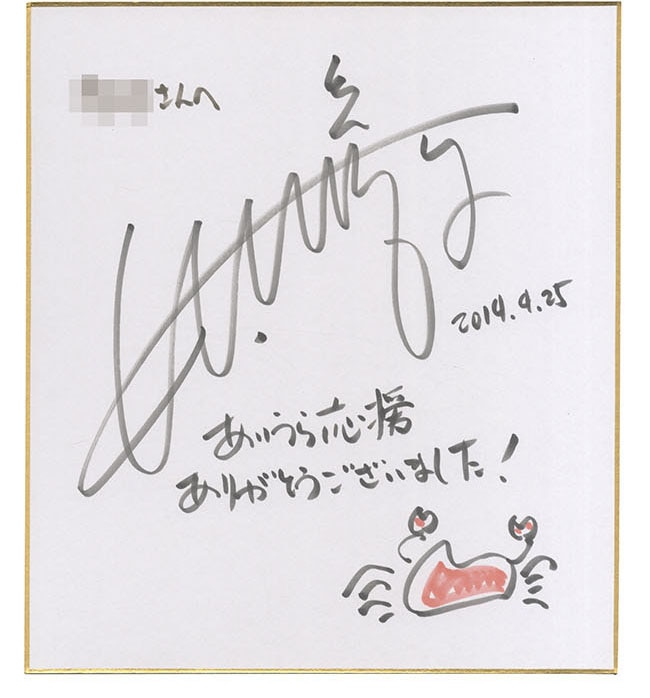 さんへ
2014.4.25
あいうら応援
ありがとうございました!